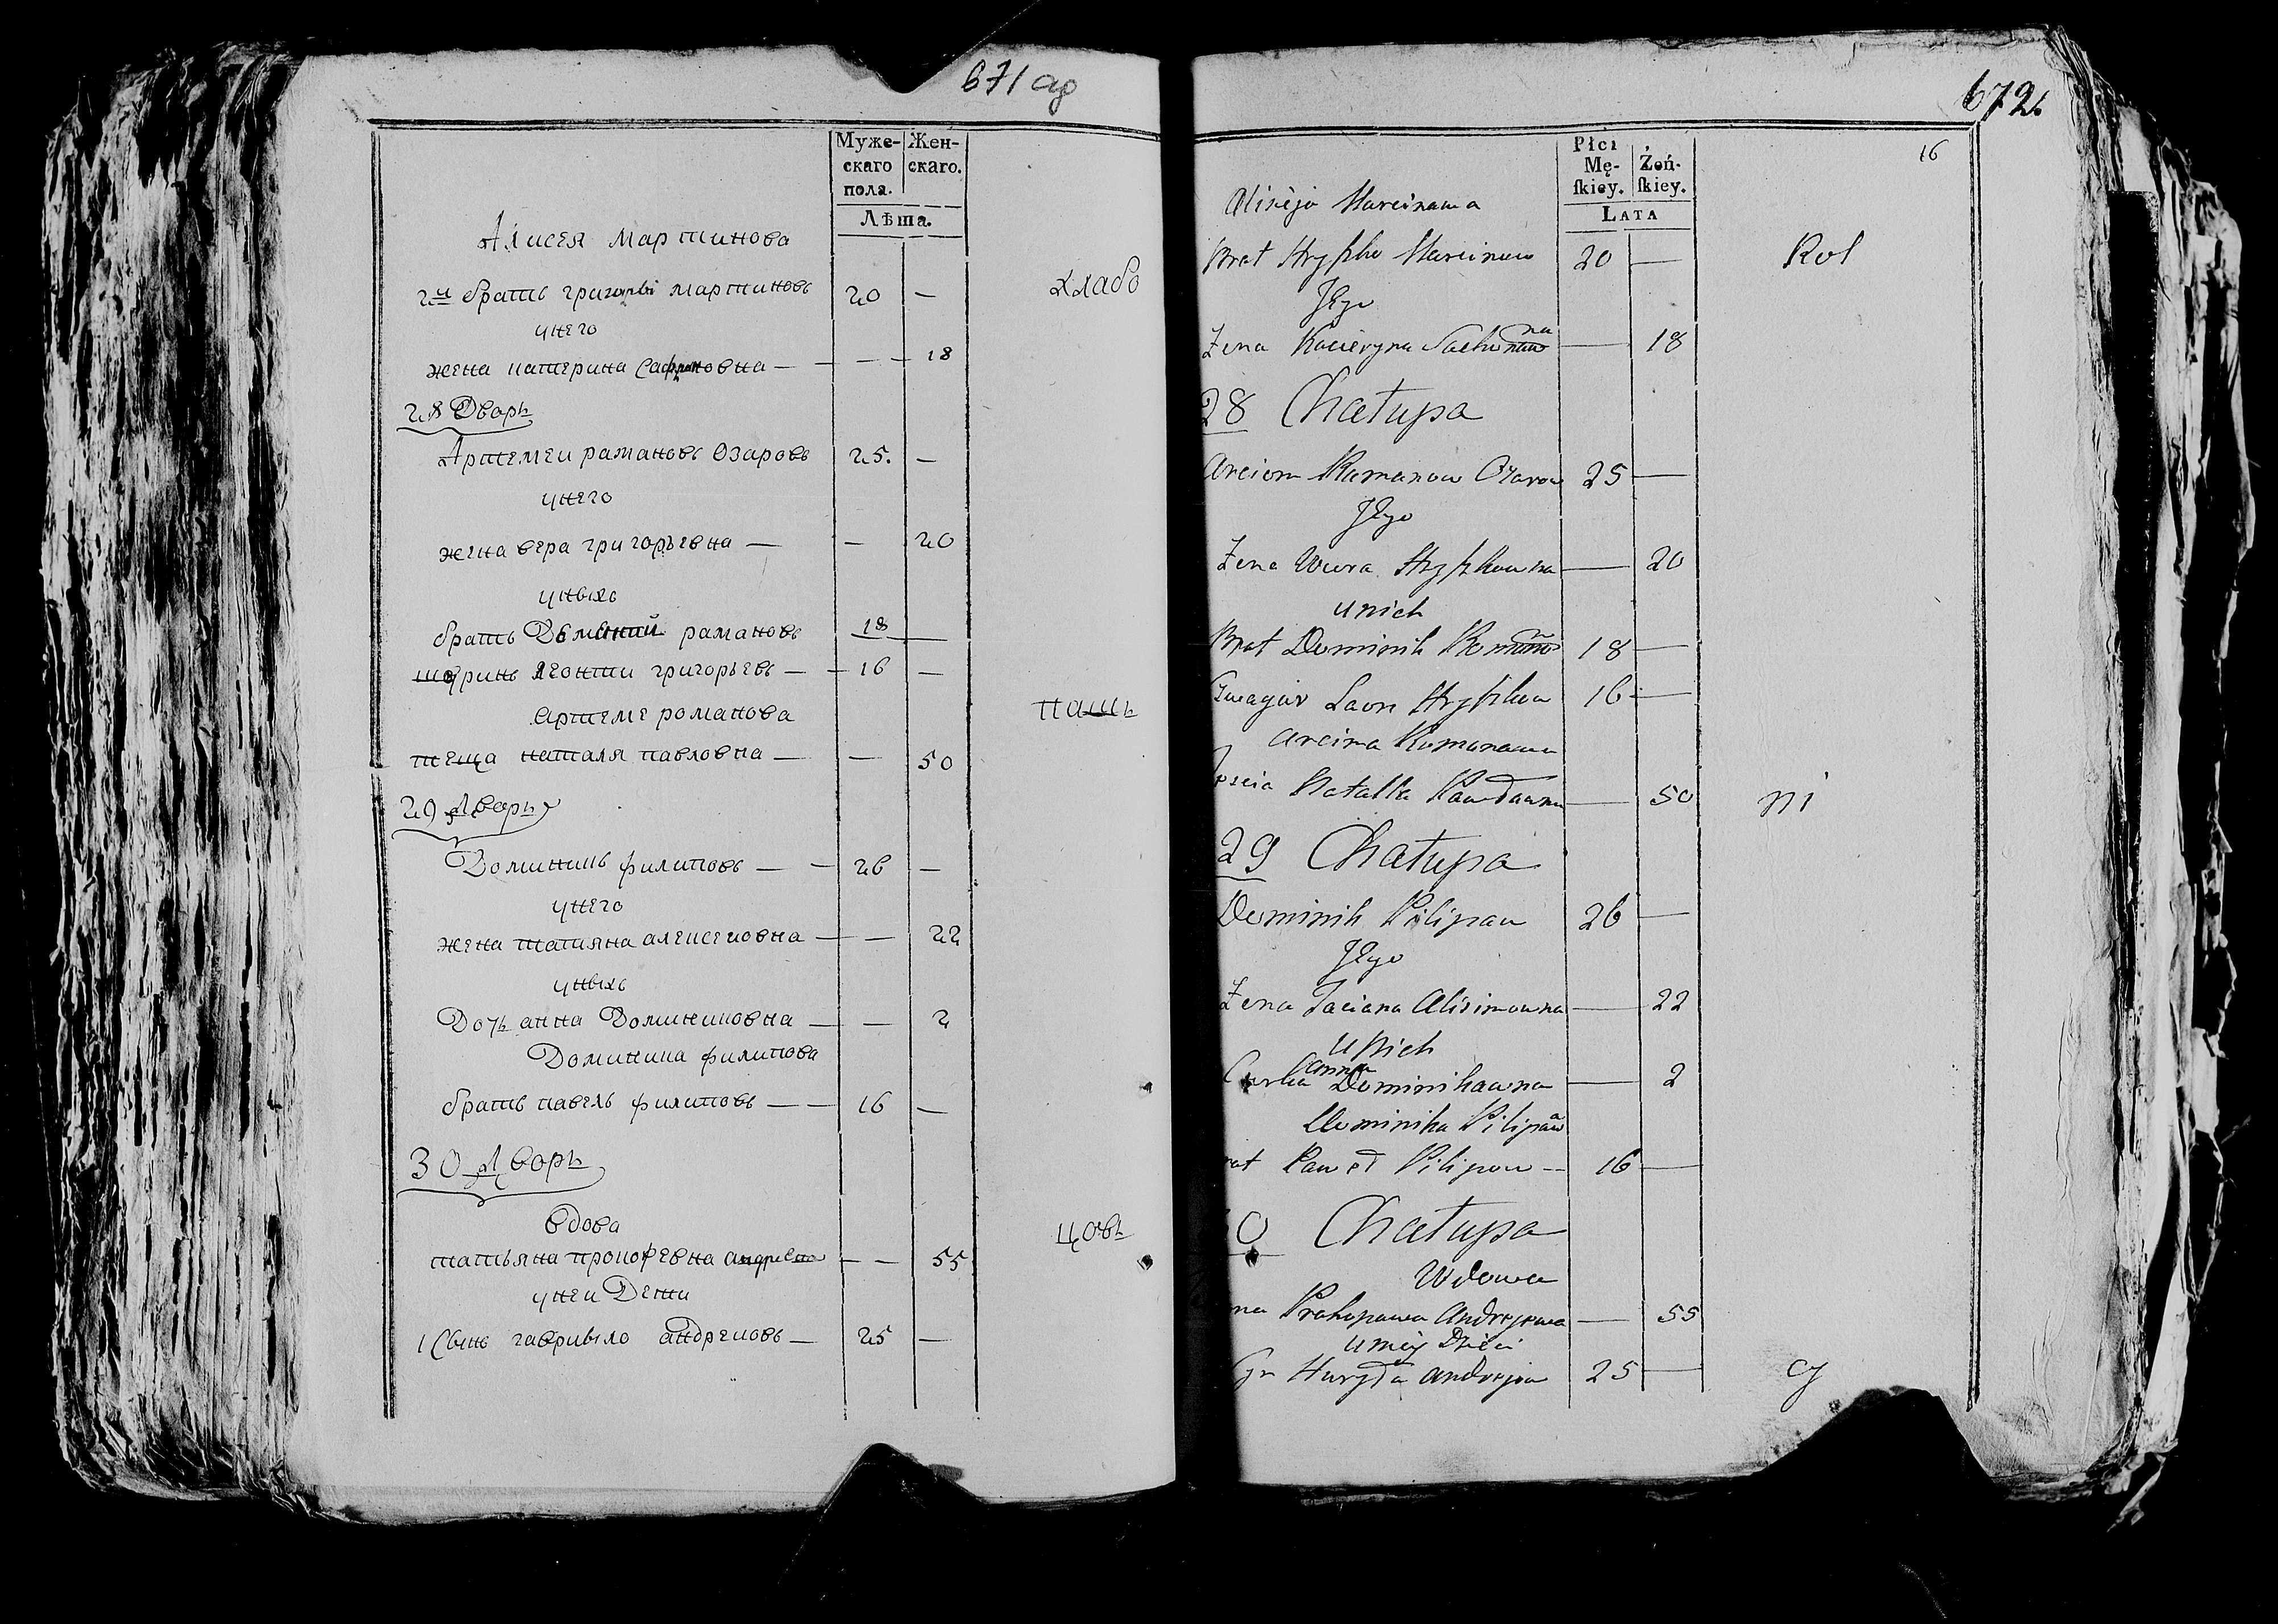 671 ар
Муже- Жен-
скаго скаго.
пола.
Лѣта.
Алисея Мартинова
2й братъ григорьи мартиновъ 20 —
хлабо
унего
жена катерина — — 18
28 Дворъ
Артемеи рамановъ Озаровъ 25. —
унего
жена вера григорьевна — — 20
уныхъ
братъ рамановъ 18 —
шуринъ леонти григорьевъ — 16 —
артеме романова
пашъ
теща наталя павловна — — 50
29 Дворъ
Доминикъ филиповъ — 26 —
унего
жена татияна алексеиовна — — 22
уныхъ
Дочь анна Доминиковна — — 2
Доминика филипова
братъ павелъ филиповъ — — 16 —
30 Дворъ
вдова
цовъ
татьяна прокофевна — — 55
унеи Дети
1 Сынъ гаврыло андреиовъ — 25 —
672.
16
Płci
Mę- Żeń-
ſkiey. ſkiey.
LATA
Alisieja Marcinawa
Brat Hryszko Marcinow 20 —
Rol
Jego
Żena Kacieryna — 18
28 Chałupa
Arciom Ramanow Ozarow 25 —
Jego
Żena Wiera Hryszkowna — 20
u nich
Brat Dominik 18 —
Szwagier Laon Hryszkow 16 —
Arcima Romanawa
Natalla Pawławna — 50
ni
29 Chałupa
Dominik Pilipaw 26 —
Jego
Żena Taciana Alisimowna — 22
u nich
Curka Anna Dominikawna — 2
Dominika Pilipawa
rat Paweł Pilipow — 16 —
0 Chałupa
Wdowa
na Prakopawa Andrejewa — 55
u niej Dzieci
Syn Hawryła Andrejow 25 —
cy